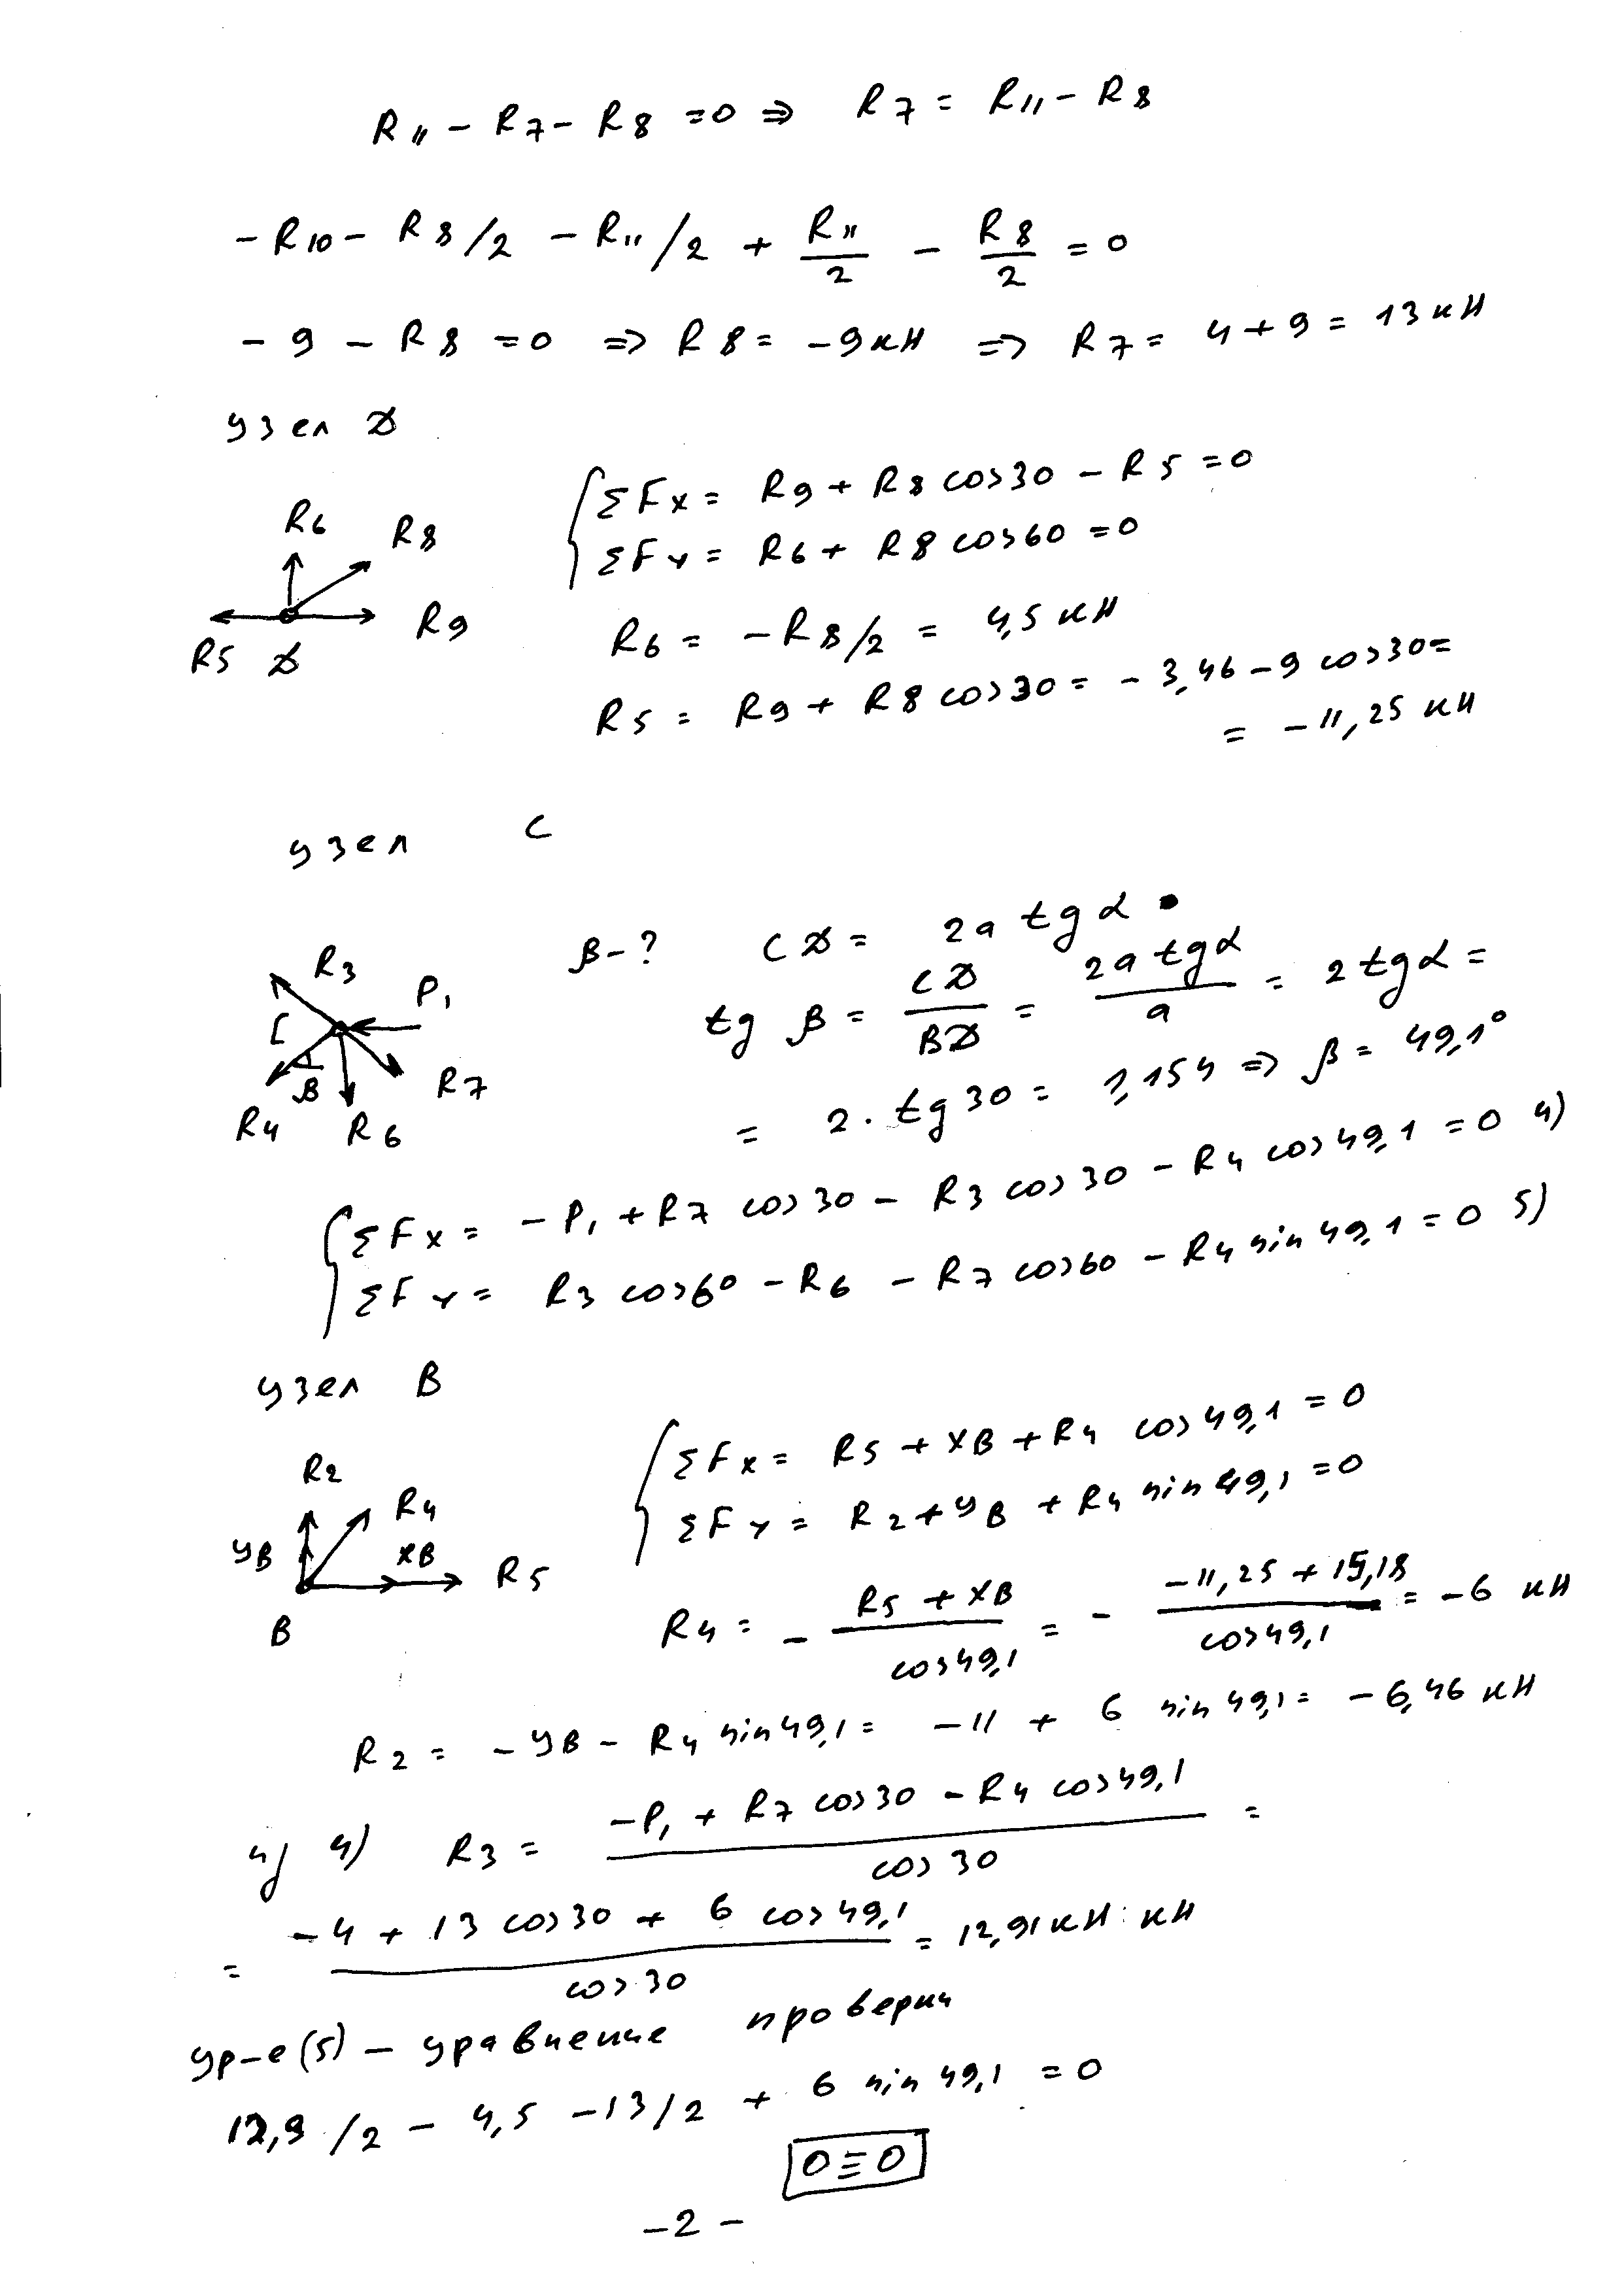 R11 − R7 − R8 = 0 ⇒ R7 = R11 − R8
− R10 − R8/2 − R11/2 + R11/2 − R8/2 = 0
− 9 − R8 = 0 ⇒ R8 = −9кН ⇒ R7 = 4+9 = 13кН
узел D
R6
R8
R9
R5 D
ΣFx = R9 + R8 cos30 − R5 = 0
ΣFy = R6 + R8 cos60 = 0
R6 = −R8/2 = 4,5 кН
R5 = R9 + R8 cos30 = −3,46 − 9 cos30 =
= −11,25 кН
узел C
R3
P1
C
β
R7
R4
R6
β-? CD = 2a tgα
tg β = CD/BD = 2a tgα/a = 2tgα =
= 2·tg30 = 1,154 ⇒ β = 49,1°
ΣFx = −P1 + R7 cos30 − R3 cos30 − R4 cos49,1 = 0 4)
ΣFy = R3 cos60 − R6 − R7 cos60 − R4 sin49,1 = 0 5)
узел B
R2
R4
yB
xB
R5
B
ΣFx = R5 + XB + R4 cos49,1 = 0
ΣFy = R2 + yB + R4 sin49,1 = 0
R4 = − (R5 + XB)/cos49,1 = − (−11,25 + 15,18)/cos49,1 = −6 кН
R2 = −yB − R4 sin49,1 = −11 + 6 sin49,1 = −6,46 кН
из 4) R3 = (−P1 + R7 cos30 − R4 cos49,1)/cos30 =
= (−4 + 13 cos30 + 6 cos49,1)/cos30 = 12,91кН кН
ур-е (5) − уравнение проверки
12,9/2 − 4,5 − 13/2 + 6 sin49,1 = 0
0≡0
−2−